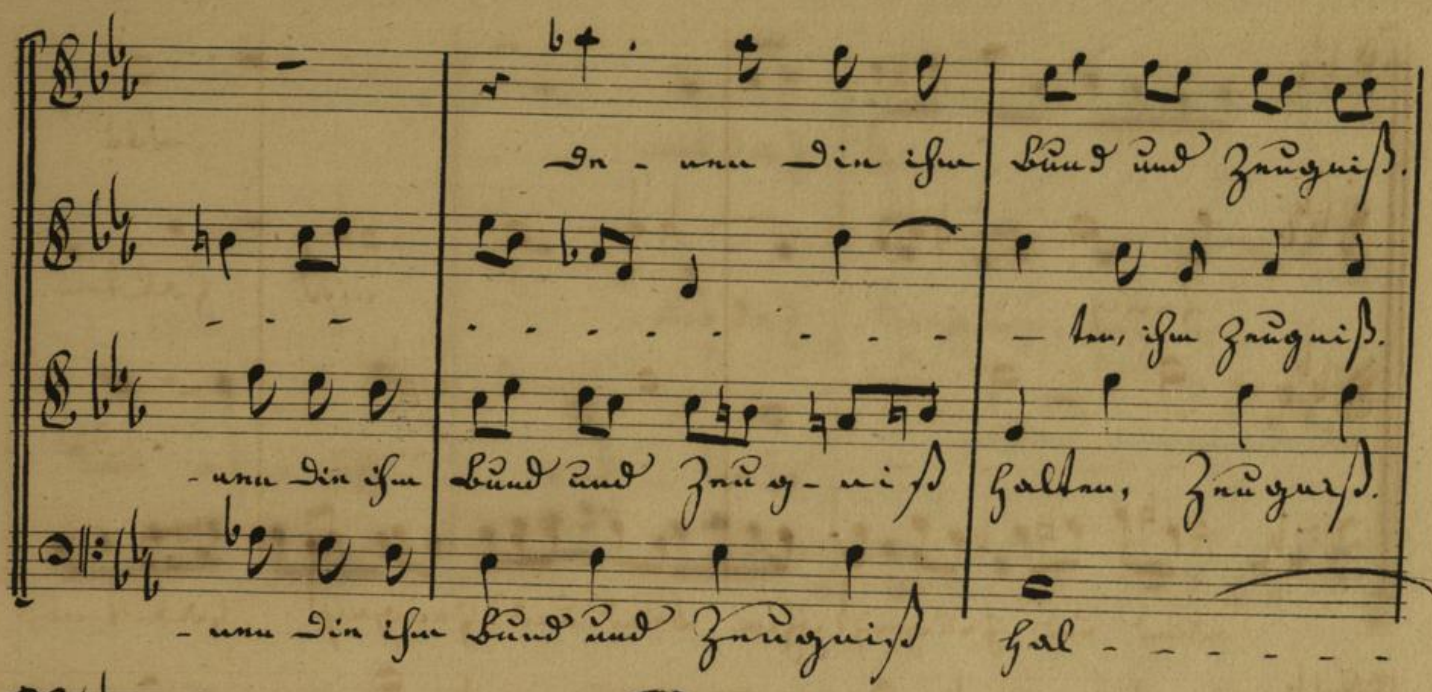 de - nen die ihm Bund und Zeugniß.
- - - - - - - - - - - ten, ihm Zeugniß.
- nen die ihm Bund und Zeug - niß halten, Zeugniß.
- nen die ihm Bund und Zeugniß hal - - - - - -